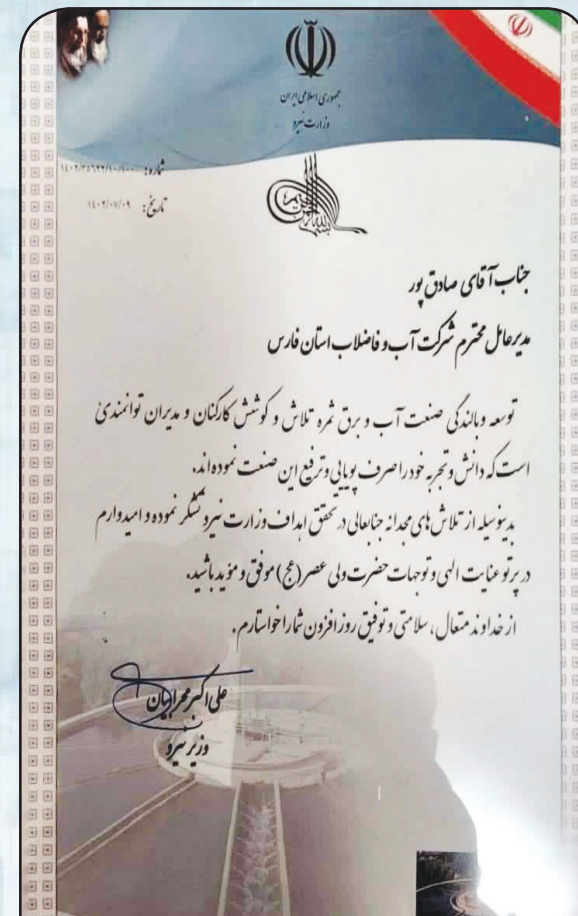 جمهوری اسلامی ایران
وزارت نیرو
شماره: ۱۴۰۲/۳۵۶۲۲/۱۰/۱۰۰
تاریخ: ۱۴۰۲/۰۷/۰۹
بسم الله الرحمن الرحیم
جناب آقای صادق پور
مدیرعامل محترم شرکت آب و فاضلاب استان فارس
توسعه و بالندگی صنعت آب و برق ثمره تلاش و کوشش کارکنان و مدیران توانمندی
است که دانش و تجربه خود را صرف پویایی و ترفیع این صنعت نموده‌اند.
بدینوسیله از تلاش‌های مجدانه جنابعالی در تحقق اهداف وزارت نیرو تشکر نموده و امیدوارم
در پرتو عنایت الهی و توجهات حضرت ولی عصر (عج) موفق و مؤید باشید.
از خداوند متعال، سلامتی و توفیق روزافزون شما را خواستارم.
علی اکبر محرابیان
وزیر نیرو